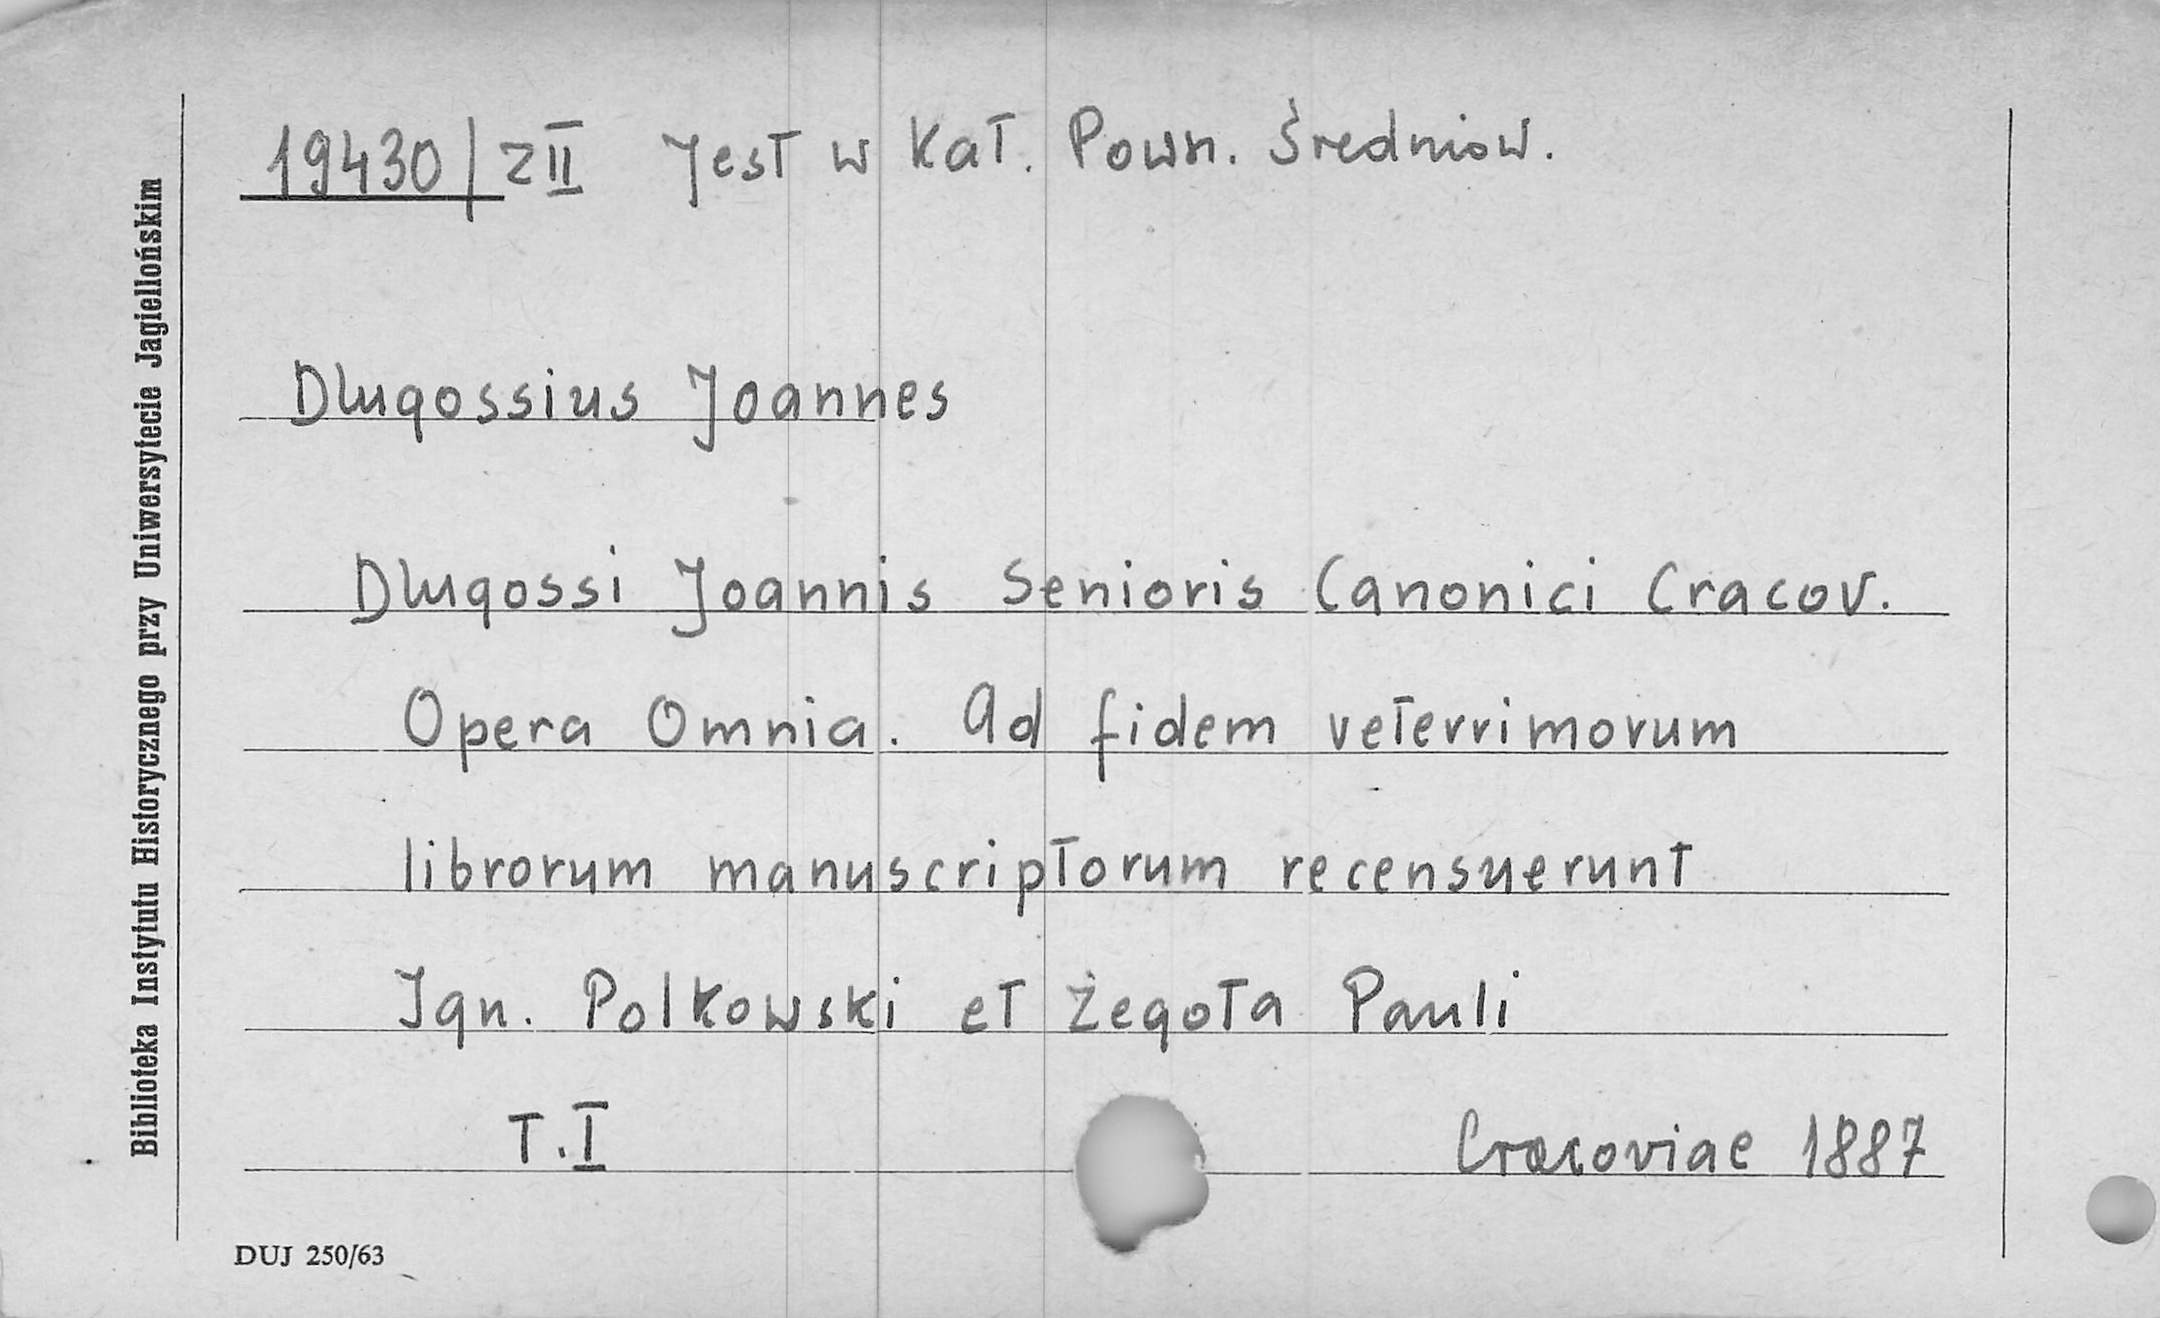 19430/zII Jest w Kat. Pown. Średniow.
Dlugossius Joannes
Dlugossi Joannis Senioris Canonici Cracov.
Opera Omnia. Ad fidem veterrimorum
librorum manuscriptorum recensuerunt
Ign. Polkowski et Żegota Pauli
T.I Cracoviae 1887
DUJ 250/63
Biblioteka Instytutu Historycznego przy Uniwersytecie Jagiellońskim